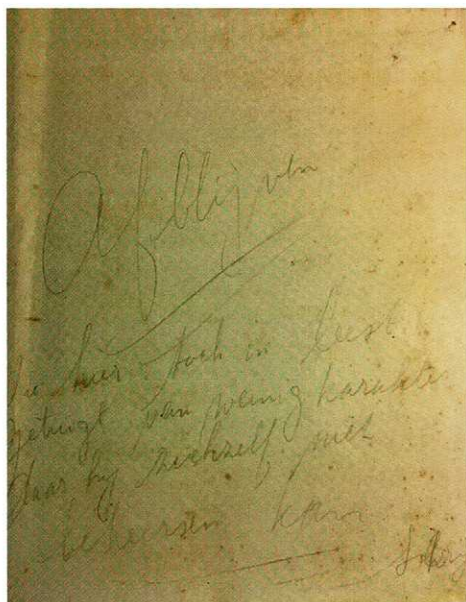 Afblijven
hier toch in leest
getuigt van weinig karakter
daar hy zichzelf niet
beheersen kan